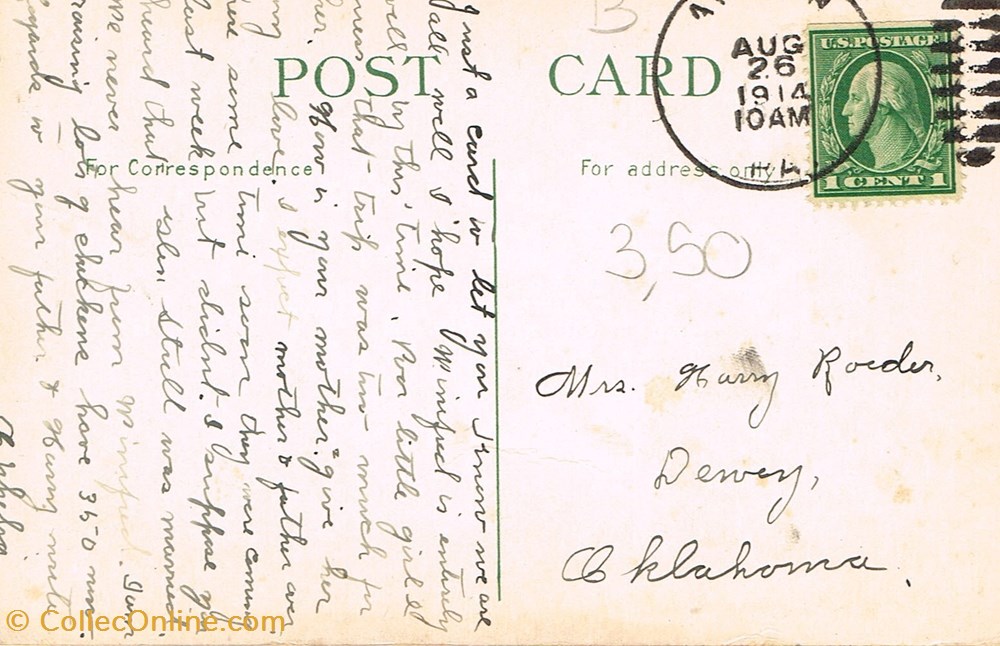 B
POST CARD
For Correspondence
For address only
AUG
26
1914
10AM
IA
U.S. POSTAGE
1 CENT 1
3,50
Mrs. Harry Roeder,
Dewey,
Oklahoma.
Just a card to let you know we are
all well & hope Winifred is entirely
well by this time. Poor little girl I
that trip was too much for
her. How is your mother? give her
love. I expect mother & father over
some time soon they were comin
last week but didn't. I suppose you
heard that was married.
We never hear from Winifred. I am
raising lots of chickens have 350 now.
regards to your father & Harry
© CollecOnline.com